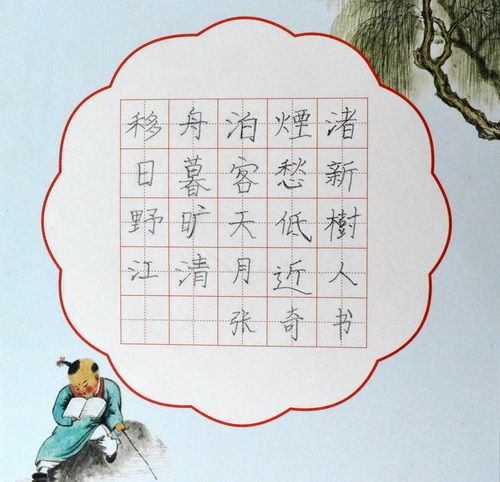 移舟泊煙渚
日暮客愁新
野旷天低樹
江清月近人
张奇书